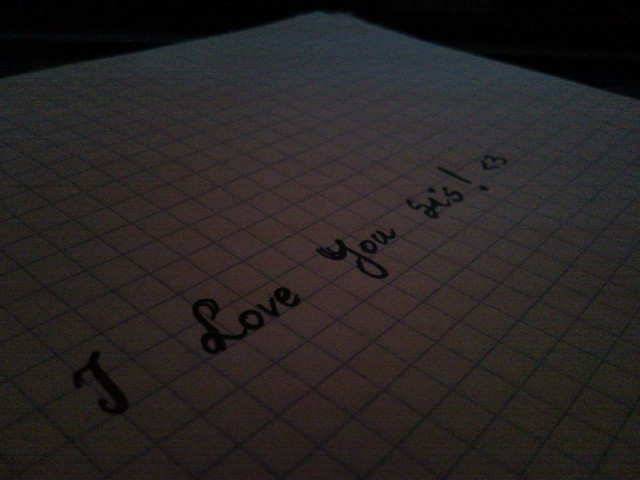 I Love You Sis! <3